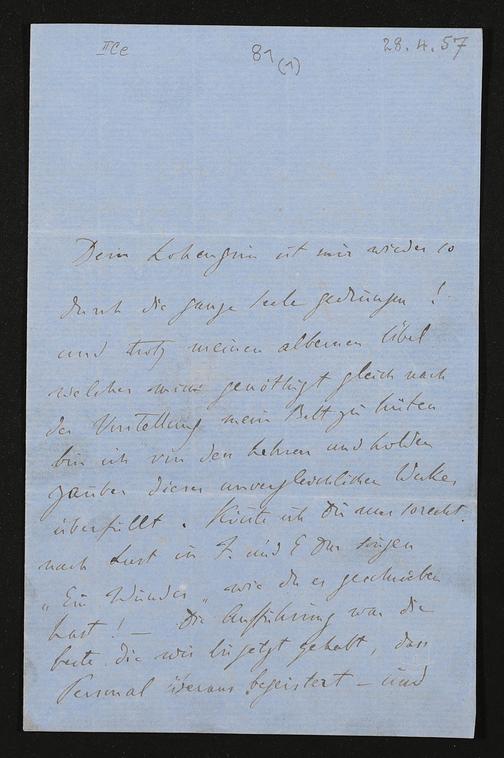 IICe
81 (1)
28.4.57
Dein Lohengrin ist mir wieder so
durch die ganze Seele gedrungen !
und trotz meinen albernen Übel
welches mich genöthigt gleich nach
der Vorstellung mein Bett zu hüten
bin ich von den hehren und holden
Zauber dieses unvergleichlichen Werkes
überfüllt . Könnte ich Dir nur so recht
nach Lust in F. und E Dur singen
„Ein Wunder„ wie du es geschrieben
hast ! — Die Aufführung war die
beste die wir bis jetzt gehabt, das
Personal überaus begeistert – und